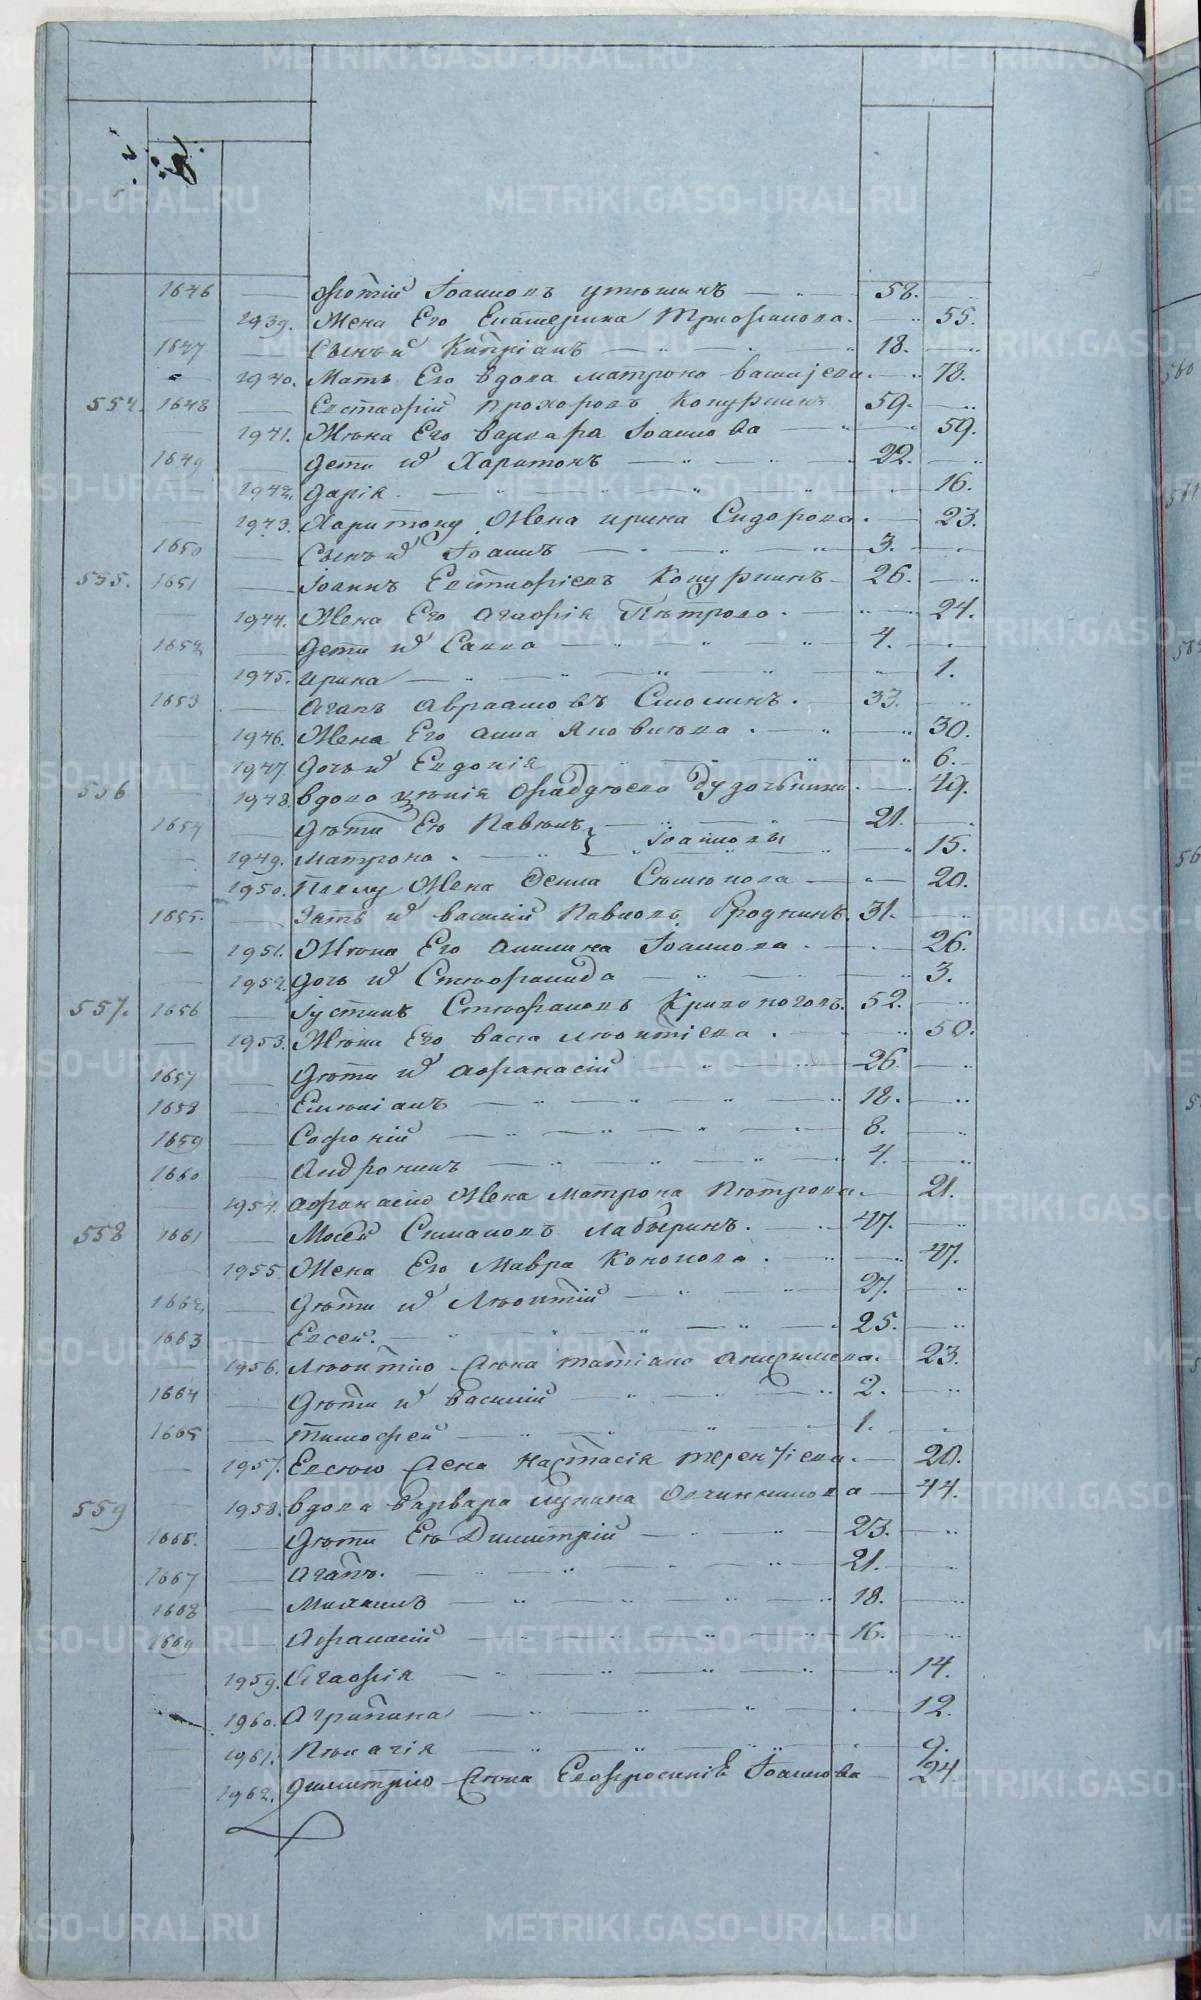 1646 Фотий Іоанновъ Утюшинъ 58.
1939. Жена Его Екатерина Трифонова. 55.
1647 Сынъ и Кипріанъ 18.
1940. Мать Его вдова матрона 78.
554. 1648 Евстафій Прохоровъ 59.
1941. Жена Его варвара Іоаннова 59.
1649 Дети и Харитонъ 22.
1942. Дарія. 16.
1943. Харитону Жена ирина Сидорова. 23.
1650 Сынъ и Іоаннъ 3.
555. 1651 Іоаннъ Евстафіевъ 26.
1944. Жена Его Агафія Петрова. 24.
1652 Дети и Савва 4.
1945. ирина 1.
1653 Агапъ Авраамовъ Смолинъ. 33.
1946. Жена Его анна Яковлева. 30.
1947 Дочь и Евдокія 6.
556 1948. вдова Фаддеева 49.
1654 Дети Ею Павелъ } Іоанновы 21.
1949. матрона. 15.
1950. Павлу Жена 20.
1655. Зять и василий Павловъ 31.
1951. Жена Его акилина Іоаннова. 26.
1952. Дочь и Стефанида 3.
557. 1656 Іустинъ Стефановъ Кривоноговъ. 52.
1953. Жена Его васса леонтіева. 50.
1657 Дети и афанасій 26.
1658 Емеліанъ 12.
1659 Софоній 8.
1660 Андроникъ 4.
1954. афанасію Жена Матрона Петрова. 21.
558 1661 Мосей Симановъ 47.
1955. Жена Его Мавра Кононова. 47.
1662 Дети и Леонтій 27.
1663 Евсей. 25.
1956. Леонтію Жена татіана анисимова. 23.
1664 Дети и василій 2.
1665 тимофей 1.
1957. Евсею Жена Настасія терентіева. 20.
559 1958. вдова Варвара Лукина Овчинникова 44.
1666. Дети Ею Димитрій 23.
1667 Агапъ. 21.
1668 Михаилъ 18.
1669 Афанасій 16.
1959. Агафія 14.
1960. Агрипина 12.
1961. Пелагія 9.
1962. Димитрію Жена Евфросинія Іоаннова 24